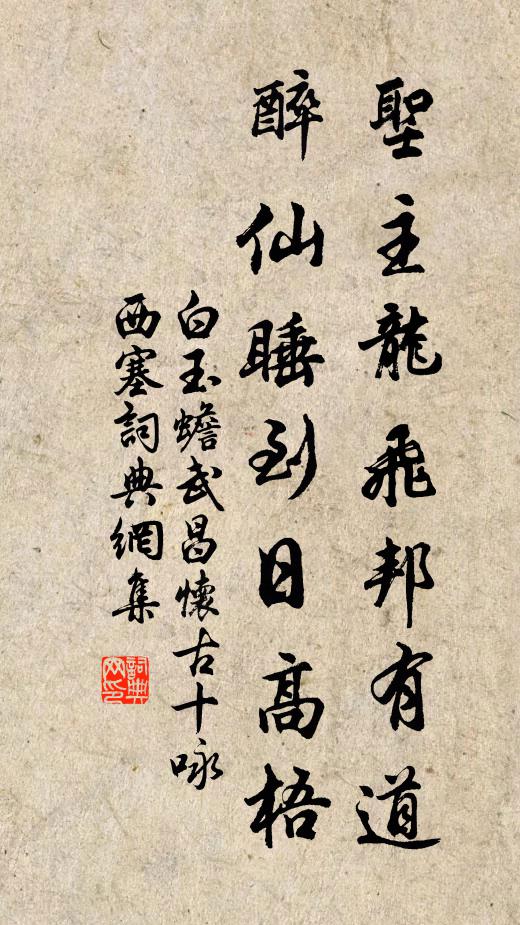 聖主龍飛邦有道
醉仙睡到日高梧
白玉蟾武昌懷古十咏
西塞詞典網集
詞典网印